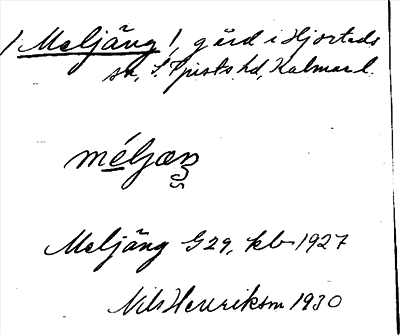 ! Meljäng !, gård i Hjorteds
sn, S. Tjusts hd, Kalmar l.
méljæŋ
Meljäng G 29, kb 1927
Nils Henriksson 1930